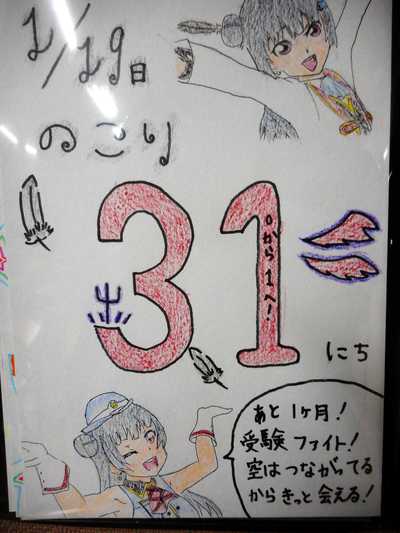 1/19日
のこり
31
0から1へ!
にち
あと1ヶ月!
受験ファイト!
空はつながってる
からきっと会える!